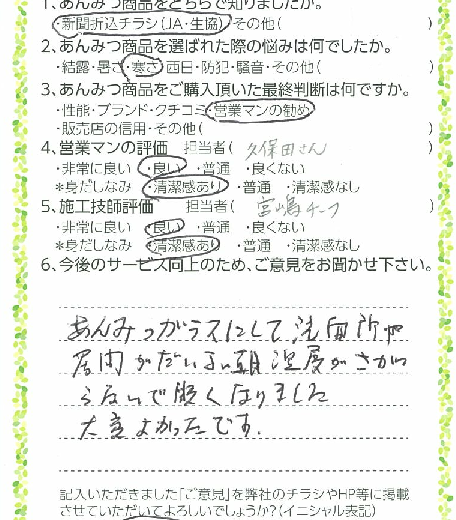 1、あんみつ商品をどちらで知りましたか。
・新聞折込チラシ(JA・生協) ・その他( )
2、あんみつ商品を選ばれた際の悩みは何でしたか。
・結露・暑さ・寒さ・西日・防犯・騒音・その他( )
3、あんみつ商品をご購入頂いた最終判断は何ですか。
・性能・ブランド・クチコミ・営業マンの勧め
・販売店の信用・その他( )
4、営業マンの評価 担当者( 久保田さん )
・非常に良い ・良い ・普通 ・良くない
*身だしなみ ・清潔感あり ・普通 ・清潔感なし
5、施工技師評価 担当者( 宮嶋チーフ )
・非常に良い ・良い ・普通 ・良くない
*身だしなみ ・清潔感あり ・普通 ・清潔感なし
6、今後のサービス向上のため、ご意見をお聞かせ下さい。
あんみつガラスにして洗面所や
居間がだいぶい朝 湿度がさが
らないで暖くなりました
大変よかったです.
記入いただきました「ご意見」を弊社のチラシやHP等に掲載
させていただいてよろしいでしょうか?(イニシャル表記)